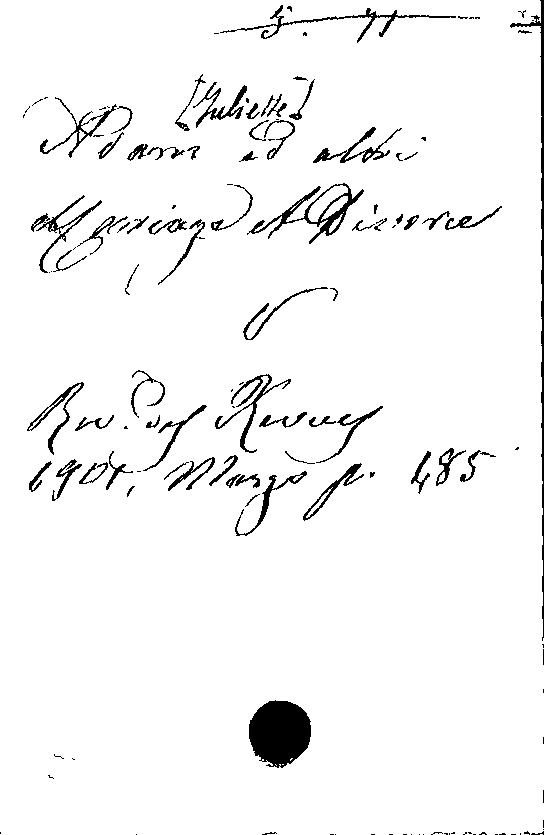 5. 71
[Juliette]
Adam ed altri
Mariage et Divorce
Rev. des Revues
1901, Marzo p. 485